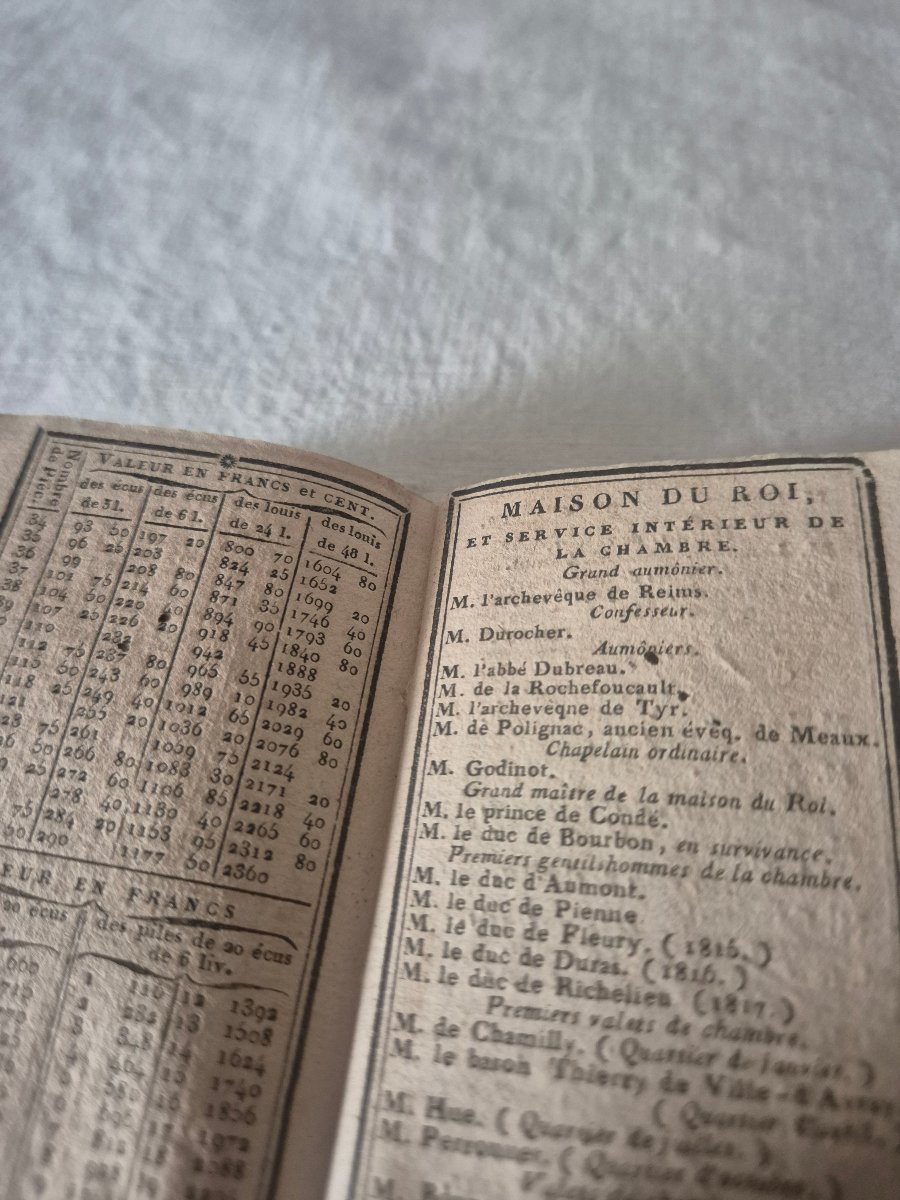 Nombre de Pièc.
VALEUR EN FRANCS et CENT.
des écus de 3 l. des écus de 6 l. des louis de 24 l. des louis de 48 l.
34 93 50 197 20 800 70 1604 80
35 96 25 203 824 25 1652
36 99 208 80 847 80 1699 20
37 101 75 214 60 871 35 1746 40
38 104 50 220 40 894 90 1793 60
107 25 226 20 918 45 1840 80
110 232 942 1888
112 75 237 80 965 55 1935 20
115 50 243 60 989 10 1982 40
118 25 249 40 1012 65 2029 60
121 255 20 1036 20 2076 80
75 261 1059 75 2124
50 266 80 1083 30 2171 20
25 272 60 1106 85 2218 40
278 40 1130 40 2265 60
75 284 20 1153 95 2312 80
50 290 1177 50 2360
EUR EN FRANCS
20 écus des piles de 20 écus
de 6 liv.
600 1 116 12 1392
2 232 13 1508
3 348 14 1624
4 464 15 1740
580 16 1856
17 1972
MAISON DU ROI,
ET SERVICE INTÉRIEUR DE
LA CHAMBRE.
Grand aumônier.
M. l'archevêque de Reims.
Confesseur.
M. Durocher.
Aumôniers.
M. l'abbé Dubreau.
M. de la Rochefoucault.
M. l'archevêque de Tyr.
M. de Polignac, ancien évêq. de Meaux.
Chapelain ordinaire.
M. Godinot.
Grand maître de la maison du Roi.
M. le prince de Condé.
M. le duc de Bourbon, en survivance.
Premiers gentilshommes de la chambre.
M. le duc d'Aumont.
M. le duc de Pienne
M. le duc de Fleury. (1815.)
M. le duc de Duras. (1816.)
M. le duc de Richelieu (1817.)
Premiers valets de chambre.
M. de Chamilly. (Quartier de janvier.)
M. le baron Thierry de Ville-d'Avray
(Quartier d'avril.)
M. Hue. (Quartier de juillet.)
M. Peronnet. (Quartier d'octobre.)